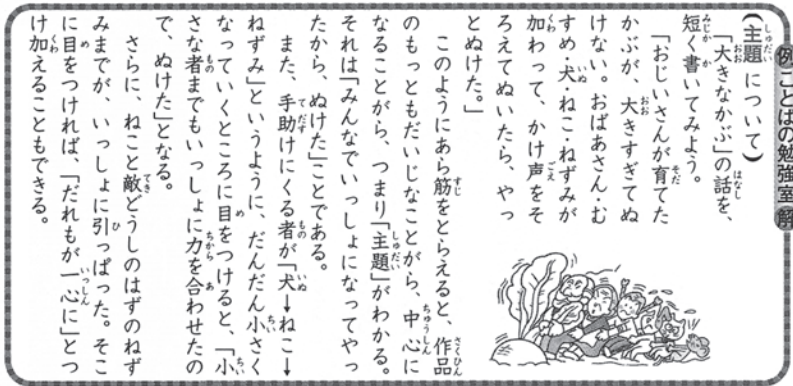 例 ことばの勉強室 解
（主題について）
「大きなかぶ」の話を、
短く書いてみよう。
「おじいさんが育てた
かぶが、大きすぎてぬ
けない。おばあさん・む
すめ・犬・ねこ・ねずみが
加わって、かけ声をそ
ろえてぬいたら、やっ
とぬけた。」
このようにあら筋をとらえると、作品
のもっともだいじなことがら、中心に
なることがら、つまり「主題」がわかる。
それは「みんなでいっしょになってやっ
たから、ぬけた」ことである。
また、手助けにくる者が「犬→ねこ→
ねずみ」というように、だんだん小さく
なっていくところに目をつけると、「小
さな者までもいっしょに力を合わせたの
で、ぬけた」となる。
さらに、ねこと敵どうしのはずのねず
みまでが、いっしょに引っぱった。そこ
に目をつければ、「だれもが一心に」とつ
け加えることもできる。